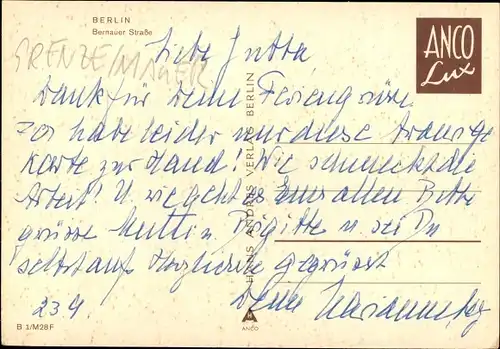 BERLIN
Bernauer Straße
GRENZE/MAUER
ANCO
Lux
Liebe Jutta
Dank für Deine Feriengrüße
Ich habe leider nur diese traurige
Karte zur Hand! Wie schmeckt die
Arbeit? U. wie geht es euch allen Bitte
grüsse Mutti u. Brigitte u. sei Du
selbst auf Herzlichste gegrüsst
23 4. Deine Marianne
HANS ANDRES VERLAG BERLIN
A
ANCO
B 1/M28F